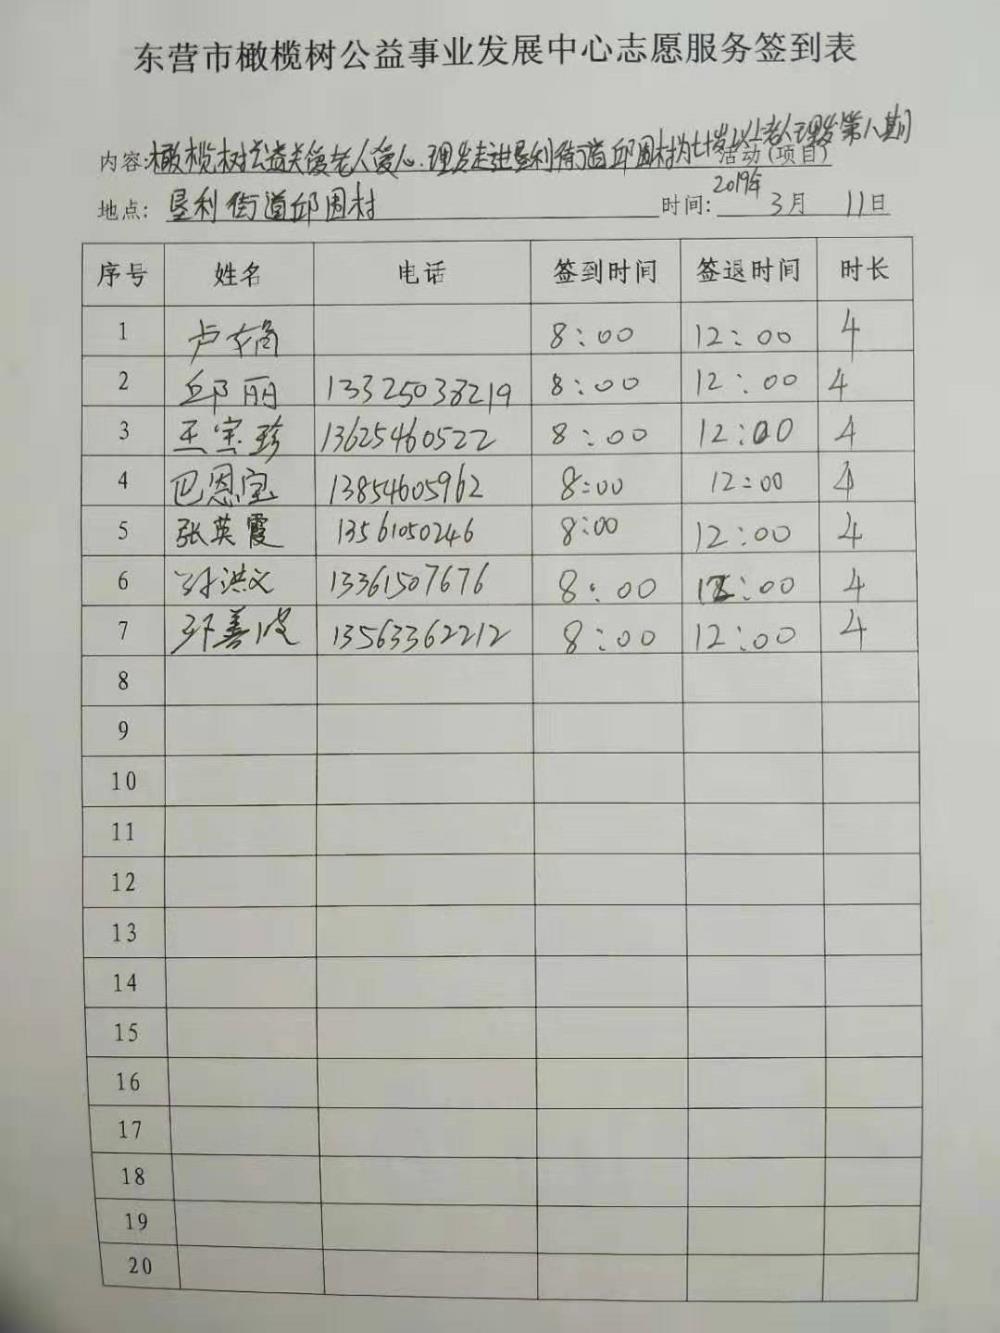 东营市橄榄树公益事业发展中心志愿服务签到表
内容:橄榄树公益关爱老人爱心理发走进垦利街道邱围村为七十岁以上老人理发第八期 活动(项目)
地点: 垦利街道邱围村 时间: 2019年 3月 11日
序号 姓名 电话 签到时间 签退时间 时长
1 卢 8:00 12:00 4
2 邱丽 13325038219 8:00 12:00 4
3 王宝珍 13625460522 8:00 12:00 4
4 巴恩宝 13854605962 8:00 12:00 4
5 张英霞 13561050246 8:00 12:00 4
6 孙洪文 13361507676 8:00 12:00 4
7 善波 13563362212 8:00 12:00 4
8
9
10
11
12
13
14
15
16
17
18
19
20